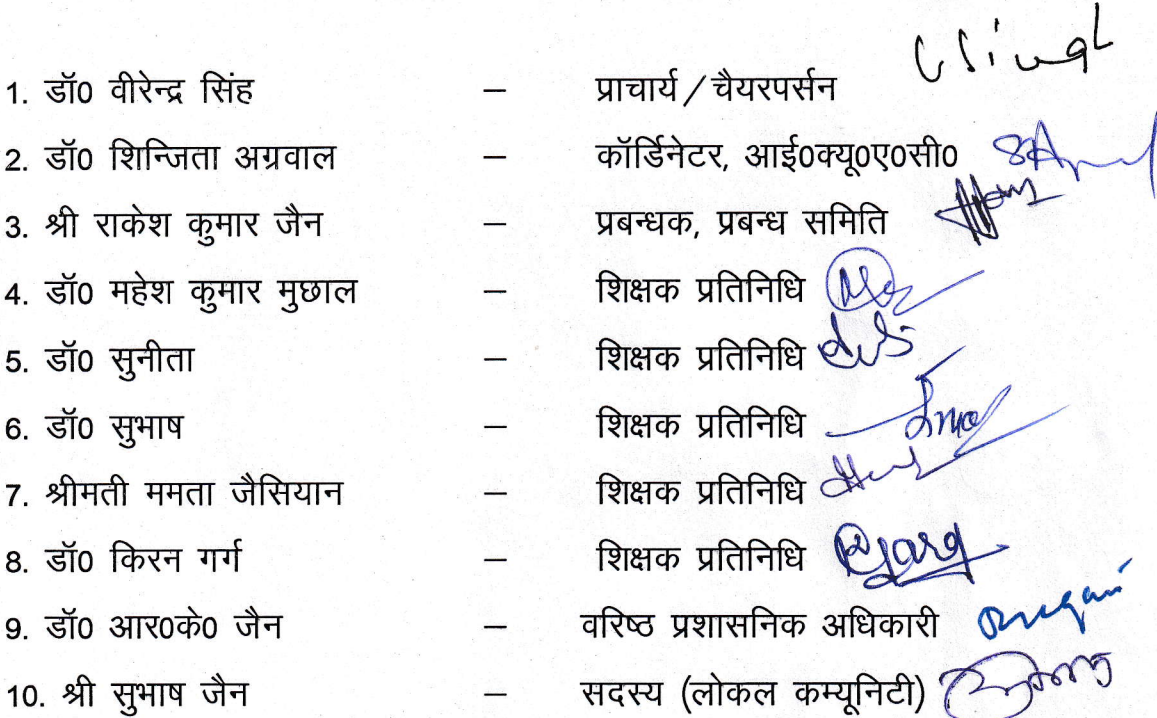 1. डॉ0 वीरेन्द्र सिंह – प्राचार्य/चैयरपर्सन
2. डॉ0 शिन्जिता अग्रवाल – कॉर्डिनेटर, आई0क्यू0ए0सी0
3. श्री राकेश कुमार जैन – प्रबन्धक, प्रबन्ध समिति
4. डॉ0 महेश कुमार मुछाल – शिक्षक प्रतिनिधि
5. डॉ0 सुनीता – शिक्षक प्रतिनिधि
6. डॉ0 सुभाष – शिक्षक प्रतिनिधि
7. श्रीमती ममता जैसियान – शिक्षक प्रतिनिधि
8. डॉ0 किरन गर्ग – शिक्षक प्रतिनिधि
9. डॉ0 आर0के0 जैन – वरिष्ठ प्रशासनिक अधिकारी
10. श्री सुभाष जैन – सदस्य (लोकल कम्यूनिटी)